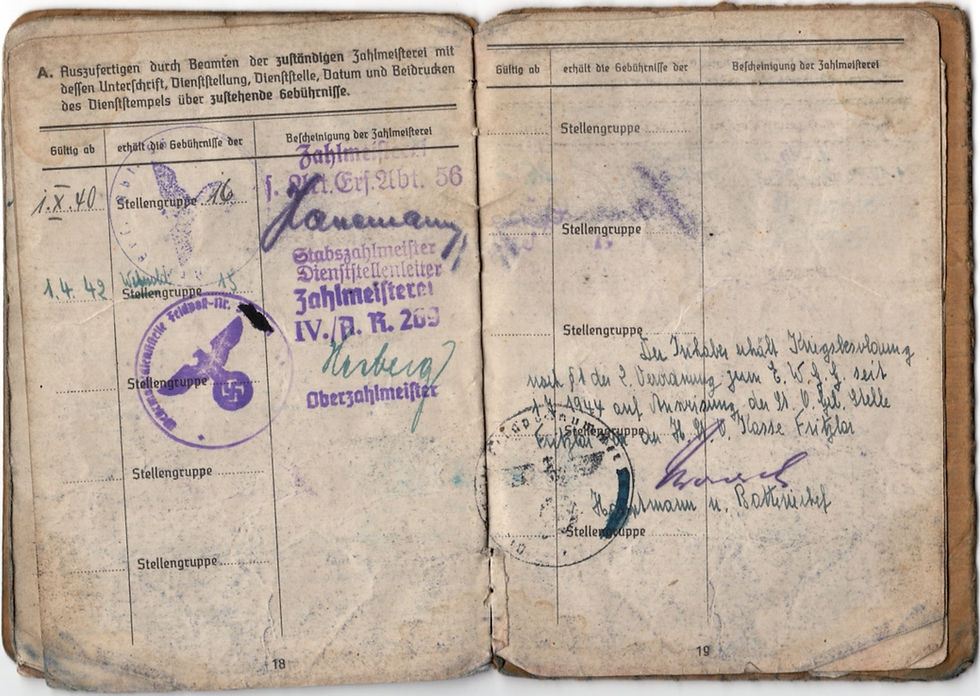 A. Auszufertigen durch Beamten der zuständigen Zahlmeisterei mit
dessen Unterschrift, Dienststellung, Dienststelle, Datum und Beidrucken
des Dienststempels über zustehende Gebührnisse.
Gültig ab erhält die Gebührnisse der Bescheinigung der Zahlmeisterei
Zahlmeisterei
s. Art. Ers. Abt. 56
1.X.40 Stellengruppe 16
Stabszahlmeister
Dienststellenleiter
1.4. 42 Stellengruppe 15
Zahlmeisterei
IV./A. R. 269
Feldpost-Nr.
Herberg
Stellengruppe
Oberzahlmeister
Stellengruppe
Stellengruppe
18
Gültig ab erhält die Gebührnisse der Bescheinigung der Zahlmeisterei
Stellengruppe
Stellengruppe
Stellengruppe
Der Inhaber erhält Kriegsbesoldung
nach §1 der 2. Verordnung zum E.W.G.G. seit
1944 auf Anweisung der Stelle
Stellengruppe
Fritzlar an Kasse Fritzlar
Hauptmann u. Batteriechef
Stellengruppe
19